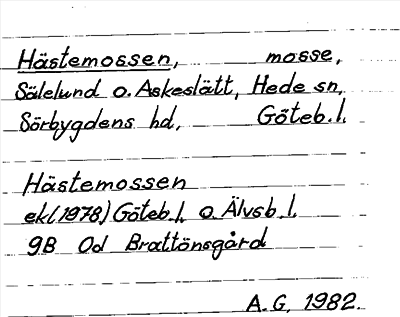 Hästemossen, mosse,
Sälelund o. Askeslätt, Hede sn,
Sörbygdens hd, Göteb. l.
Hästemossen
ekl (1978) Göteb. l. o. Älvsb. l.
9B Od Brattönsgård
A.G. 1982.